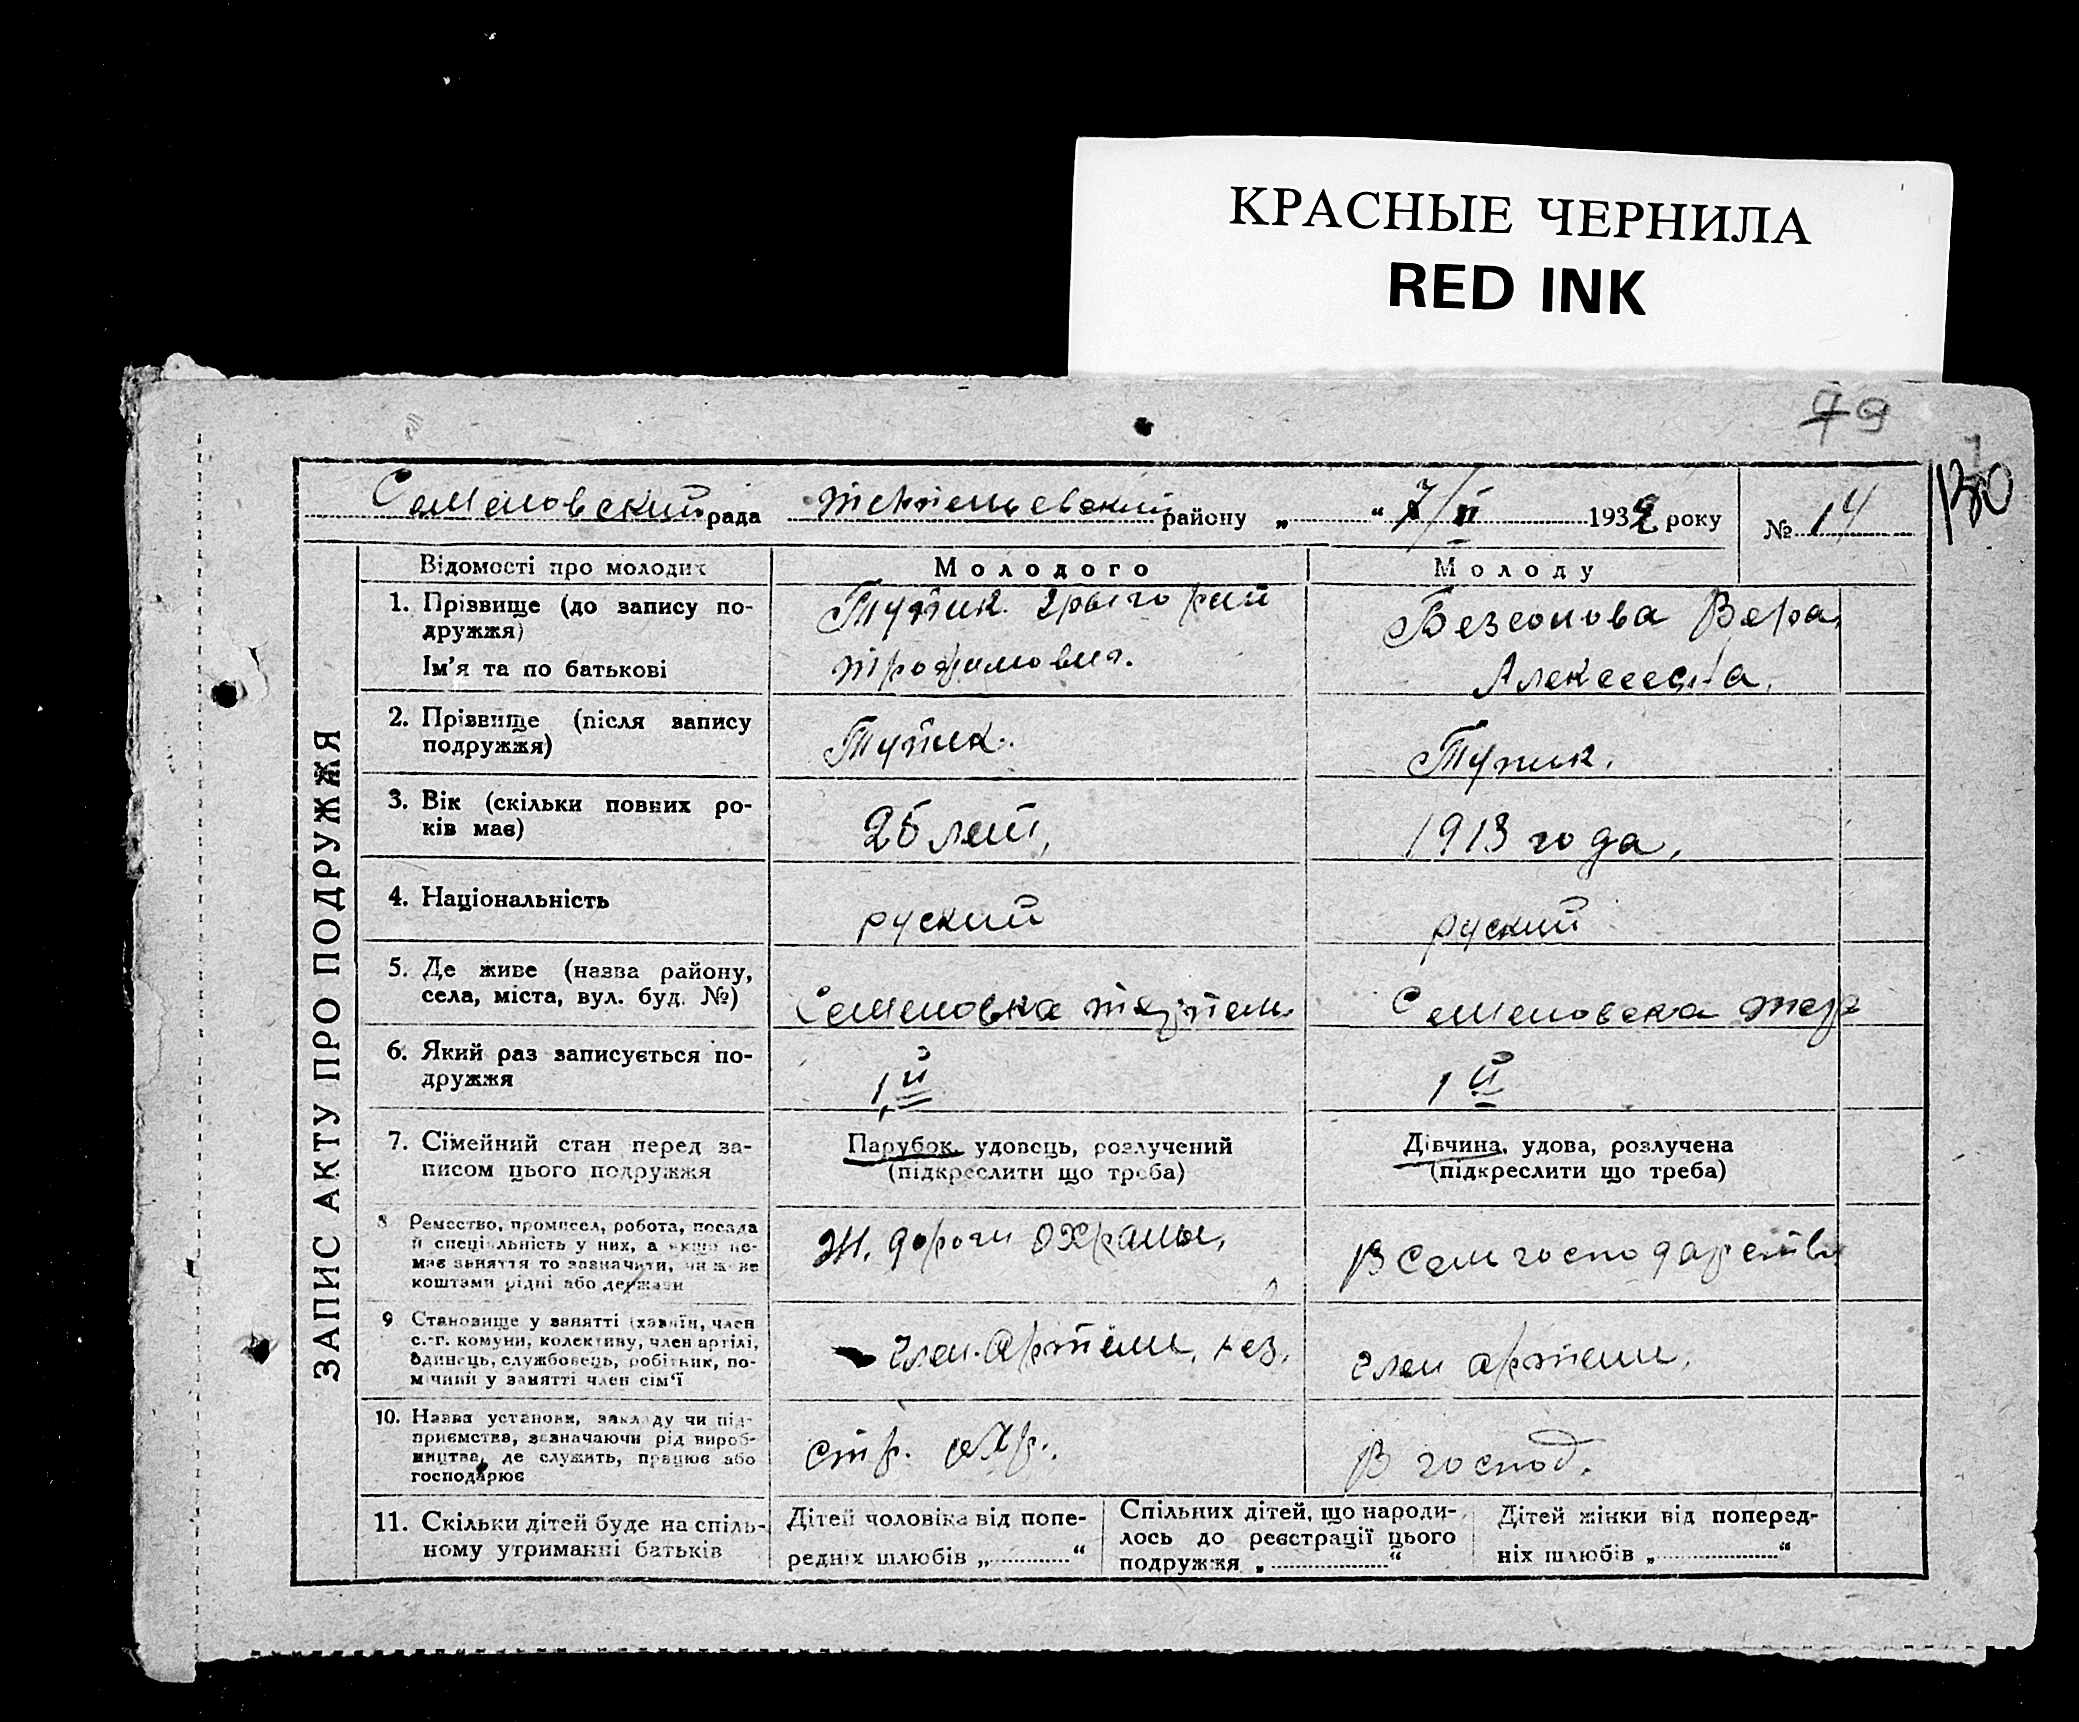 КРАСНЫЕ ЧЕРНИЛА
RED INK
79
Семеновский рада района „ “ 7/II 1932 року № 14
ЗАПИС АКТУ ПРО ПОДРУЖЖЯ
Відомості про молодих Молодого Молоду
1. Прізвище (до запису по-
дружжя)
Ім'я та по батькові
Тупик Грыгорий
Трофимович.
Безсонова Вера
Алексеевна,
2. Прізвище (після запису
подружжя)
Тупик.
Тупик.
3. Вік (скільки повних ро-
ків має)
25 лет,
1913 года,
4. Національність
руский
руский
5. Де живе (назва району,
села, міста, вул. буд. №)
Семеновка
Семеновска
6. Який раз записується по-
дружжя
1й
1й
7. Сімейний стан перед за-
писом цього подружжя
Парубок, удовець, розлучений
(підкреслити що треба)
Дівчина, удова, розлучена
(підкреслити що треба)
8 Ремество, промисел, робота, посада
й спеціальність у них, а якщо не-
має заняття то зазначити, чи живе
коштами рідні або держави
Ж. дороги охраны,
В Сем господарстви
9 Становище у занятті (хазяїн, член
с.-г. комуни, колективу, член артілі,
одинець, службовець, робітник, по-
мічний у занятті член сім'ї
член. Артели,
член артели,
10. Назва установи, закладу чи під-
приємства, зазначаючи рід вироб-
ництва, де служить, працює або
господарює
стр. охр.
В господ.
11. Скільки дітей буде на спіль-
ному утриманні батьків
Дітей чоловіка від попе-
редніх шлюбів „ “
Спільних дітей, що народи-
лось до реєстрації цього
подружжя „ “
Дітей жінки від поперед-
ніх шлюбів „ “